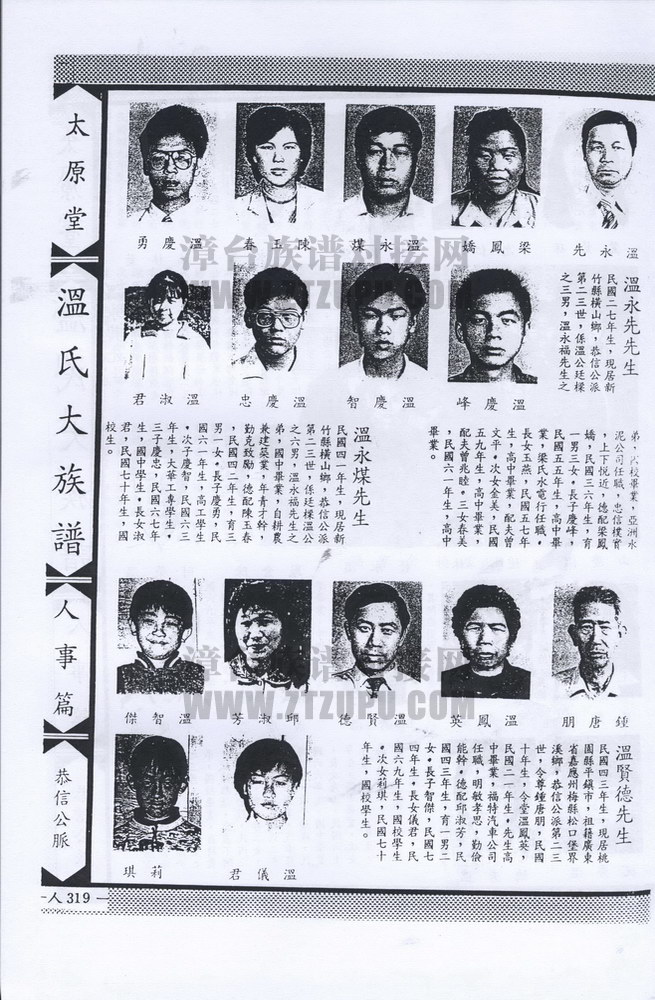 太原堂
溫氏大族譜
人事篇
恭信公脈
溫永先
梁鳳嬌
溫永煤
陳玉春
溫慶勇
溫慶峰
溫慶智
溫慶忠
溫淑君
溫永先先生
民國二七年生，現居新
竹縣橫山鄉，恭信公派
第二三世，係溫公廷樑
之三男，溫永福先生之
弟，六校畢業，亞洲水
泥公司任職，忠信樸實
，上下悅近，德配梁鳳
嬌，民國三六年生，育
一男三女。長子慶峰，
民國五五年生，高中畢
業，梁氏水電行任職。
長女玉燕，民國五七年
生，高中畢業，配夫曾
文平。次女金美，民國
五九年生，高中畢業，
配夫曾兆睦。三女春美
，民國六一年生，高中
畢業。
溫永煤先生
民國四一年生，現居新
竹縣橫山鄉，恭信公派
第二三世，係廷樑溫公
之六男，溫永福先生之
弟，國中畢業，自耕農
兼建築業，年青才幹，
勤克致勵，德配陳玉春
，民國四二年生，育三
男一女。長子慶勇，民
國六一年生，高工學生
。次子慶智，民國六三
年生，大華工專學生。
三子慶忠，民國六七年
生，國中學生。長女淑
君，民國七十年生，國
校學生。
鍾唐朋
溫鳳英
溫賢德
邱淑芳
溫智傑
溫儀君
莉琪
溫賢德先生
民國四三年生，現居桃
園縣平鎮市，祖籍廣東
省嘉應州梅縣松口堡界
溪鄉，恭信公派第二三
世，令尊鍾唐朋，民國
十年生，令堂溫鳳英，
民國二一年生。先生高
中畢業，福特汽車公司
任職，明敏孝思，勤儉
能幹。德配邱淑芳，民
國四三年生，育一男二
女。長子智傑，民國七
四年生。長女儀君，民
國六九年生，國校學生
。次女莉琪，民國七十
年生，國校學生。
人 319
漳台族谱对接网
WWW.ZTZUPU.COM
漳台族谱对接网
WWW.ZTZUPU.COM